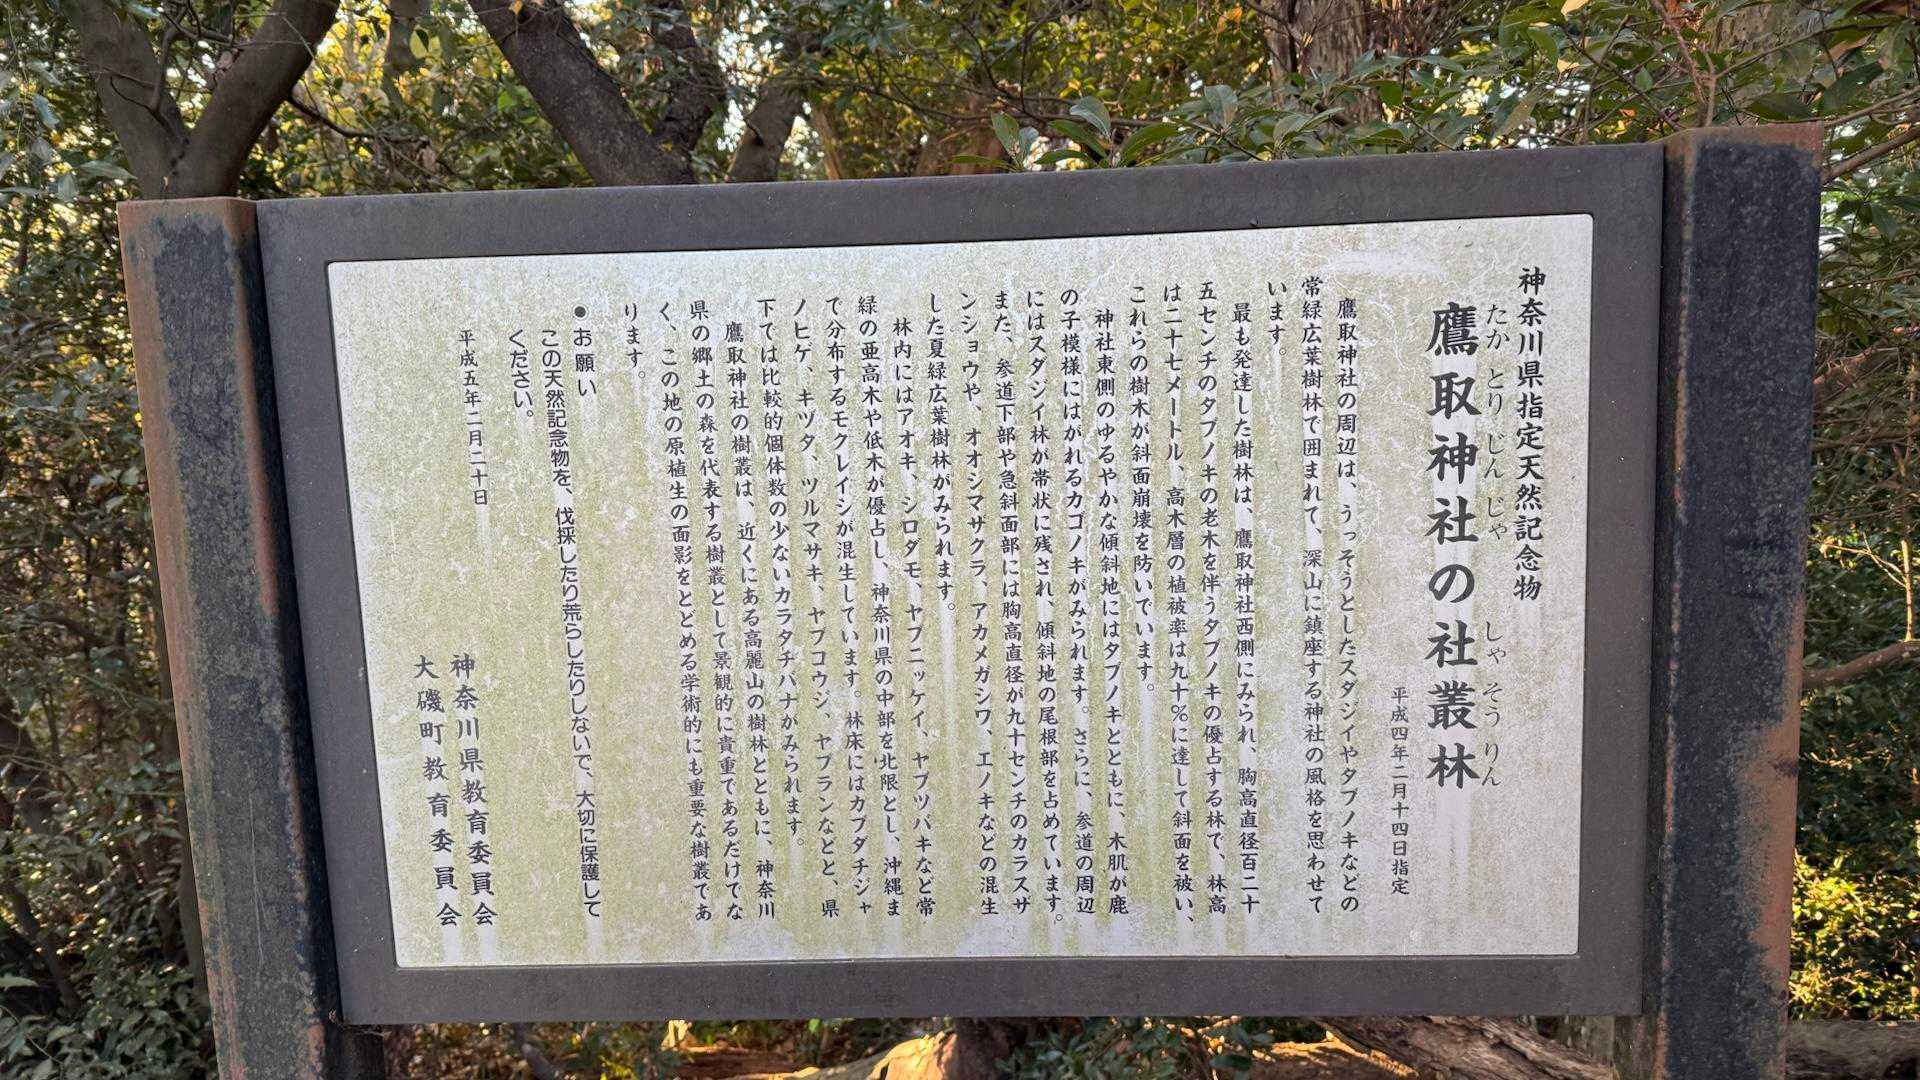 神奈川県指定天然記念物
たかとりじんじゃ しゃそうりん
鷹取神社の社叢林
平成四年二月十四日指定
鷹取神社の周辺は、うっそうとしたスダジイやタブノキなどの
常緑広葉樹林で囲まれて、深山に鎮座する神社の風格を思わせて
います。
最も発達した樹林は、鷹取神社西側にみられ、胸高直径百二十
五センチのタブノキの老木を伴うタブノキの優占する林で、林高
は二十七メートル、高木層の植被率は九十%に達して斜面を被い、
これらの樹木が斜面崩壊を防いでいます。
神社東側のゆるやかな傾斜地にはタブノキとともに、木肌が鹿
の子模様にはがれるカゴノキがみられます。さらに、参道の周辺
にはスダジイ林が帯状に残され、傾斜地の尾根部を占めています。
また、参道下部や急斜面部には胸高直径が九十センチのカラスザ
ンショウや、オオシマザクラ、アカメガシワ、エノキなどの混生
した夏緑広葉樹林がみられます。
林内にはアオキ、シロダモ、ヤブニッケイ、ヤブツバキなど常
緑の亜高木や低木が優占し、神奈川県の中部を北限とし、沖縄ま
で分布するモクレイシが混生しています。林床にはカブダチジャ
ノヒゲ、キヅタ、ツルマサキ、ヤブコウジ、ヤブランなどと、県
下では比較的個体数の少ないカラタチバナがみられます。
鷹取神社の樹叢は、近くにある高麗山の樹林とともに、神奈川
県の郷土の森を代表する樹叢として景観的に貴重であるだけでな
く、この地の原植生の面影をとどめる学術的にも重要な樹叢であ
ります。
●お願い
この天然記念物を、伐採したり荒らしたりしないで、大切に保護して
ください。
平成五年二月二十日
神奈川県教育委員会
大磯町教育委員会